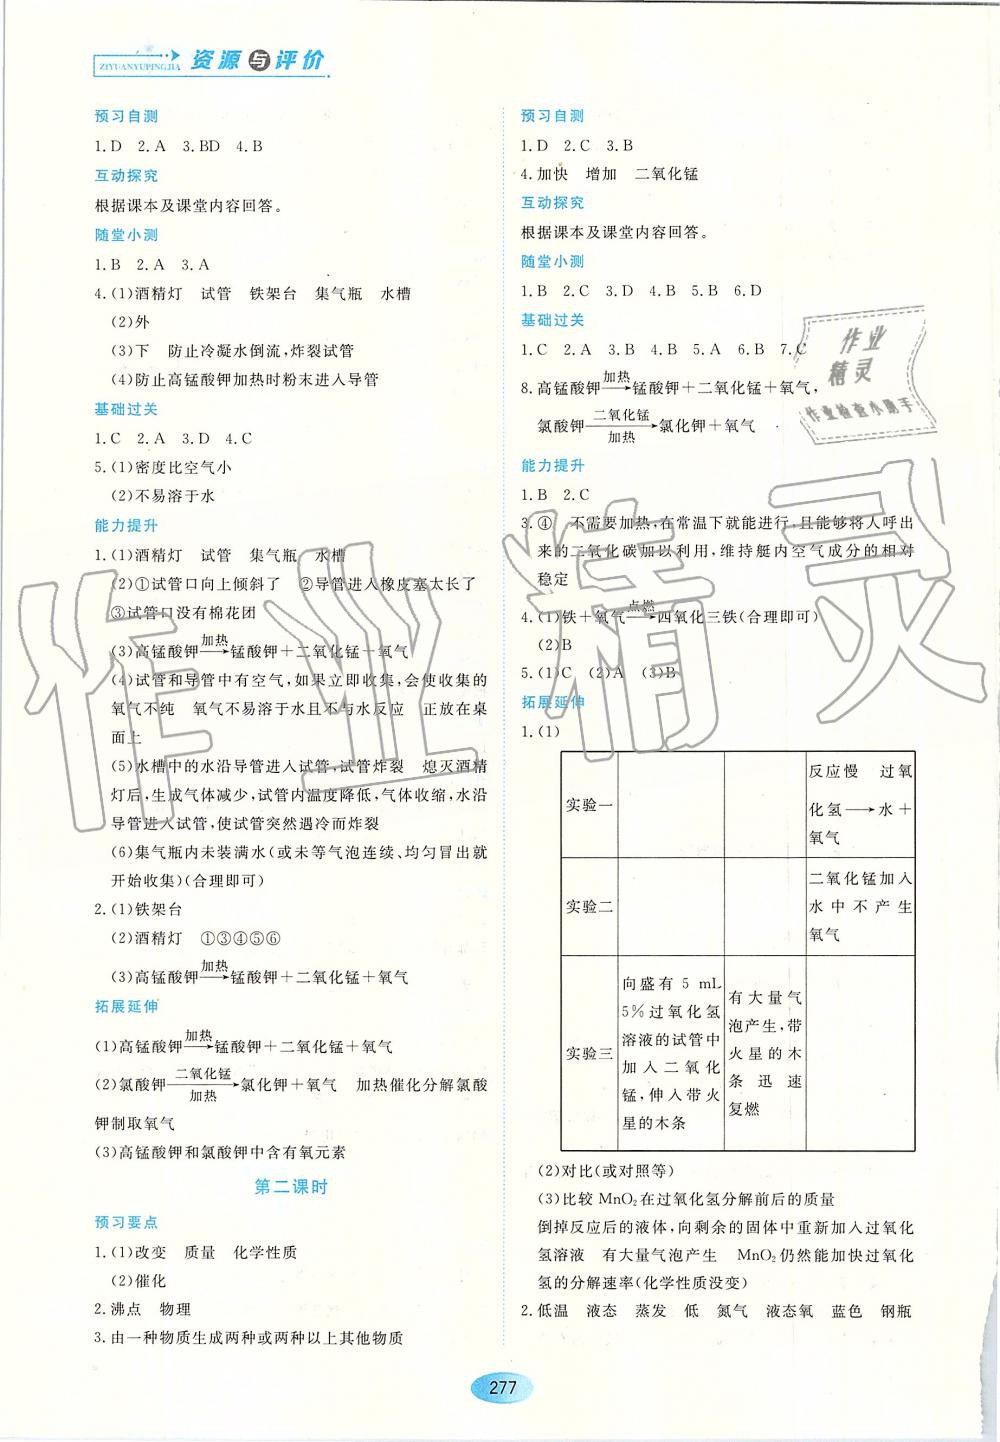 ZIYUANYUPINGJIA 资源与评价
预习自测
1.D 2.A 3.BD 4.B
互动探究
根据课本及课堂内容回答。
随堂小测
1.B 2.A 3.A
4.(1)酒精灯 试管 铁架台 集气瓶 水槽
(2)外
(3)下 防止冷凝水倒流,炸裂试管
(4)防止高锰酸钾加热时粉末进入导管
基础过关
1.C 2.A 3.D 4.C
5.(1)密度比空气小
(2)不易溶于水
能力提升
1.(1)酒精灯 试管 集气瓶 水槽
(2)①试管口向上倾斜了 ②导管进入橡皮塞太长了
③试管口没有棉花团
(3)高锰酸钾 加热→ 锰酸钾+二氧化锰+氧气
(4)试管和导管中有空气,如果立即收集,会使收集的
氧气不纯 氧气不易溶于水且不与水反应 正放在桌
面上
(5)水槽中的水沿导管进入试管,试管炸裂 熄灭酒精
灯后,生成气体减少,试管内温度降低,气体收缩,水沿
导管进入试管,使试管突然遇冷而炸裂
(6)集气瓶内未装满水(或未等气泡连续、均匀冒出就
开始收集)(合理即可)
2.(1)铁架台
(2)酒精灯 ①③④⑤⑥
(3)高锰酸钾 加热→ 锰酸钾+二氧化锰+氧气
拓展延伸
(1)高锰酸钾 加热→ 锰酸钾+二氧化锰+氧气
(2)氯酸钾 二氧化锰→加热 氯化钾+氧气 加热催化分解氯酸
钾制取氧气
(3)高锰酸钾和氯酸钾中含有氧元素
第二课时
预习要点
1.(1)改变 质量 化学性质
(2)催化
2.沸点 物理
3.由一种物质生成两种或两种以上其他物质
预习自测
1.D 2.C 3.B
4.加快 增加 二氧化锰
互动探究
根据课本及课堂内容回答。
随堂小测
1.B 2.C 3.D 4.B 5.B 6.D
基础过关
1.C 2.A 3.B 4.B 5.A 6.B 7.C
8.高锰酸钾 加热→ 锰酸钾+二氧化锰+氧气,
氯酸钾 二氧化锰→加热 氯化钾+氧气
能力提升
1.B 2.C
3.④ 不需要加热,在常温下就能进行,且能够将人呼出
来的二氧化碳加以利用,维持艇内空气成分的相对
稳定
4.(1)铁+氧气 点燃→ 四氧化三铁(合理即可)
(2)B
5.(1)C (2)A (3)B
拓展延伸
1.(1)
实验一
反应慢 过氧
化氢→水+
氧气
实验二
二氧化锰加入
水中不产生
氧气
实验三
向盛有5 mL
5%过氧化氢
溶液的试管中
加入二氧化
锰,伸入带火
星的木条
有大量气
泡产生,带
火星的木
条迅速
复燃
(2)对比(或对照等)
(3)比较MnO₂在过氧化氢分解前后的质量
倒掉反应后的液体,向剩余的固体中重新加入过氧化
氢溶液 有大量气泡产生 MnO₂仍然能加快过氧化
氢的分解速率(化学性质没变)
2.低温 液态 蒸发 低 氮气 液态氧 蓝色 钢瓶
277
作业
精灵
作业检查小助手
作业精灵